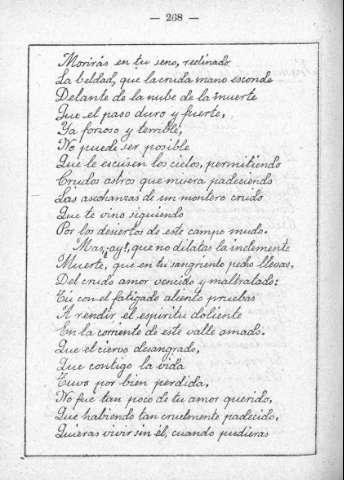 — 268 —
Morirás en tu seno, reclinado
La beldad, que la cruda mano esconde
Delante de la nube de la muerte
Que el paso duro y fuerte,
Ya forzoso y terrible,
No puede ser posible
Que le escusen los cielos, permitiendo
Crudos astros que muera padeciendo
Las asechanzas de un montero crudo
Que te vino siguiendo
Por los desiertos de este campo mudo.
Mas, ay!, que no dilatas la inclemente
Muerte, que en tu sangriento pecho llevas,
Del crudo amor vencido y maltratado:
Tú con el fatigado aliento pruebas
A rendir el espíritu doliente
En la corriente de este valle amado.
Que el ciervo desangrado,
Que contigo la vida
Tuvo por bien perdida,
No fue tan poco de tu amor querido,
Que habiendo tan cruelmente padecido,
Quieras vivir sin él, cuando pudieras